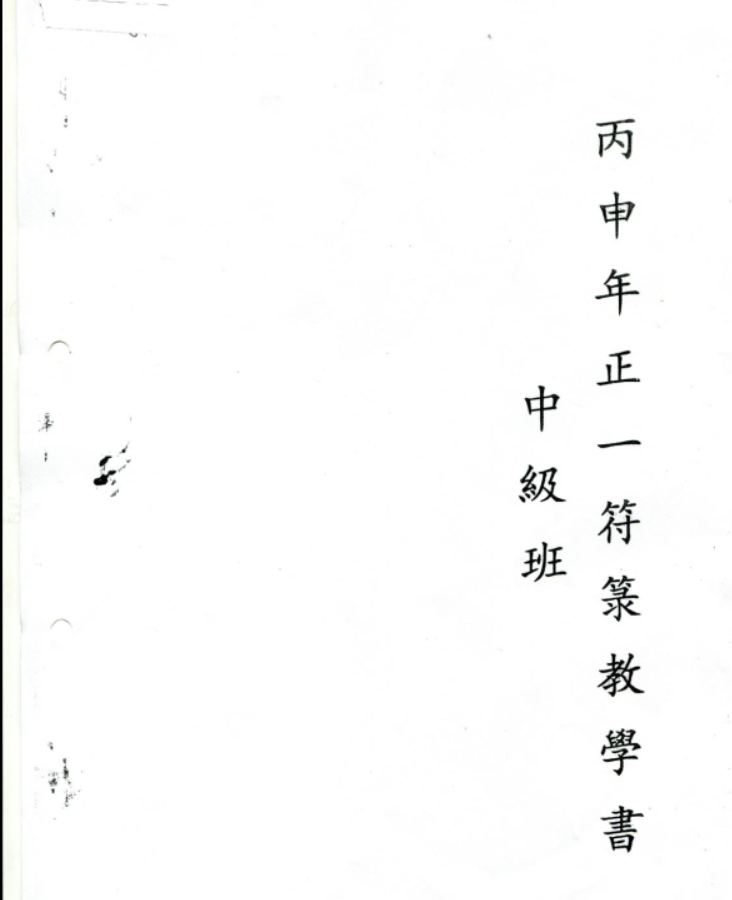 丙申年正一符箓教學書
中級班